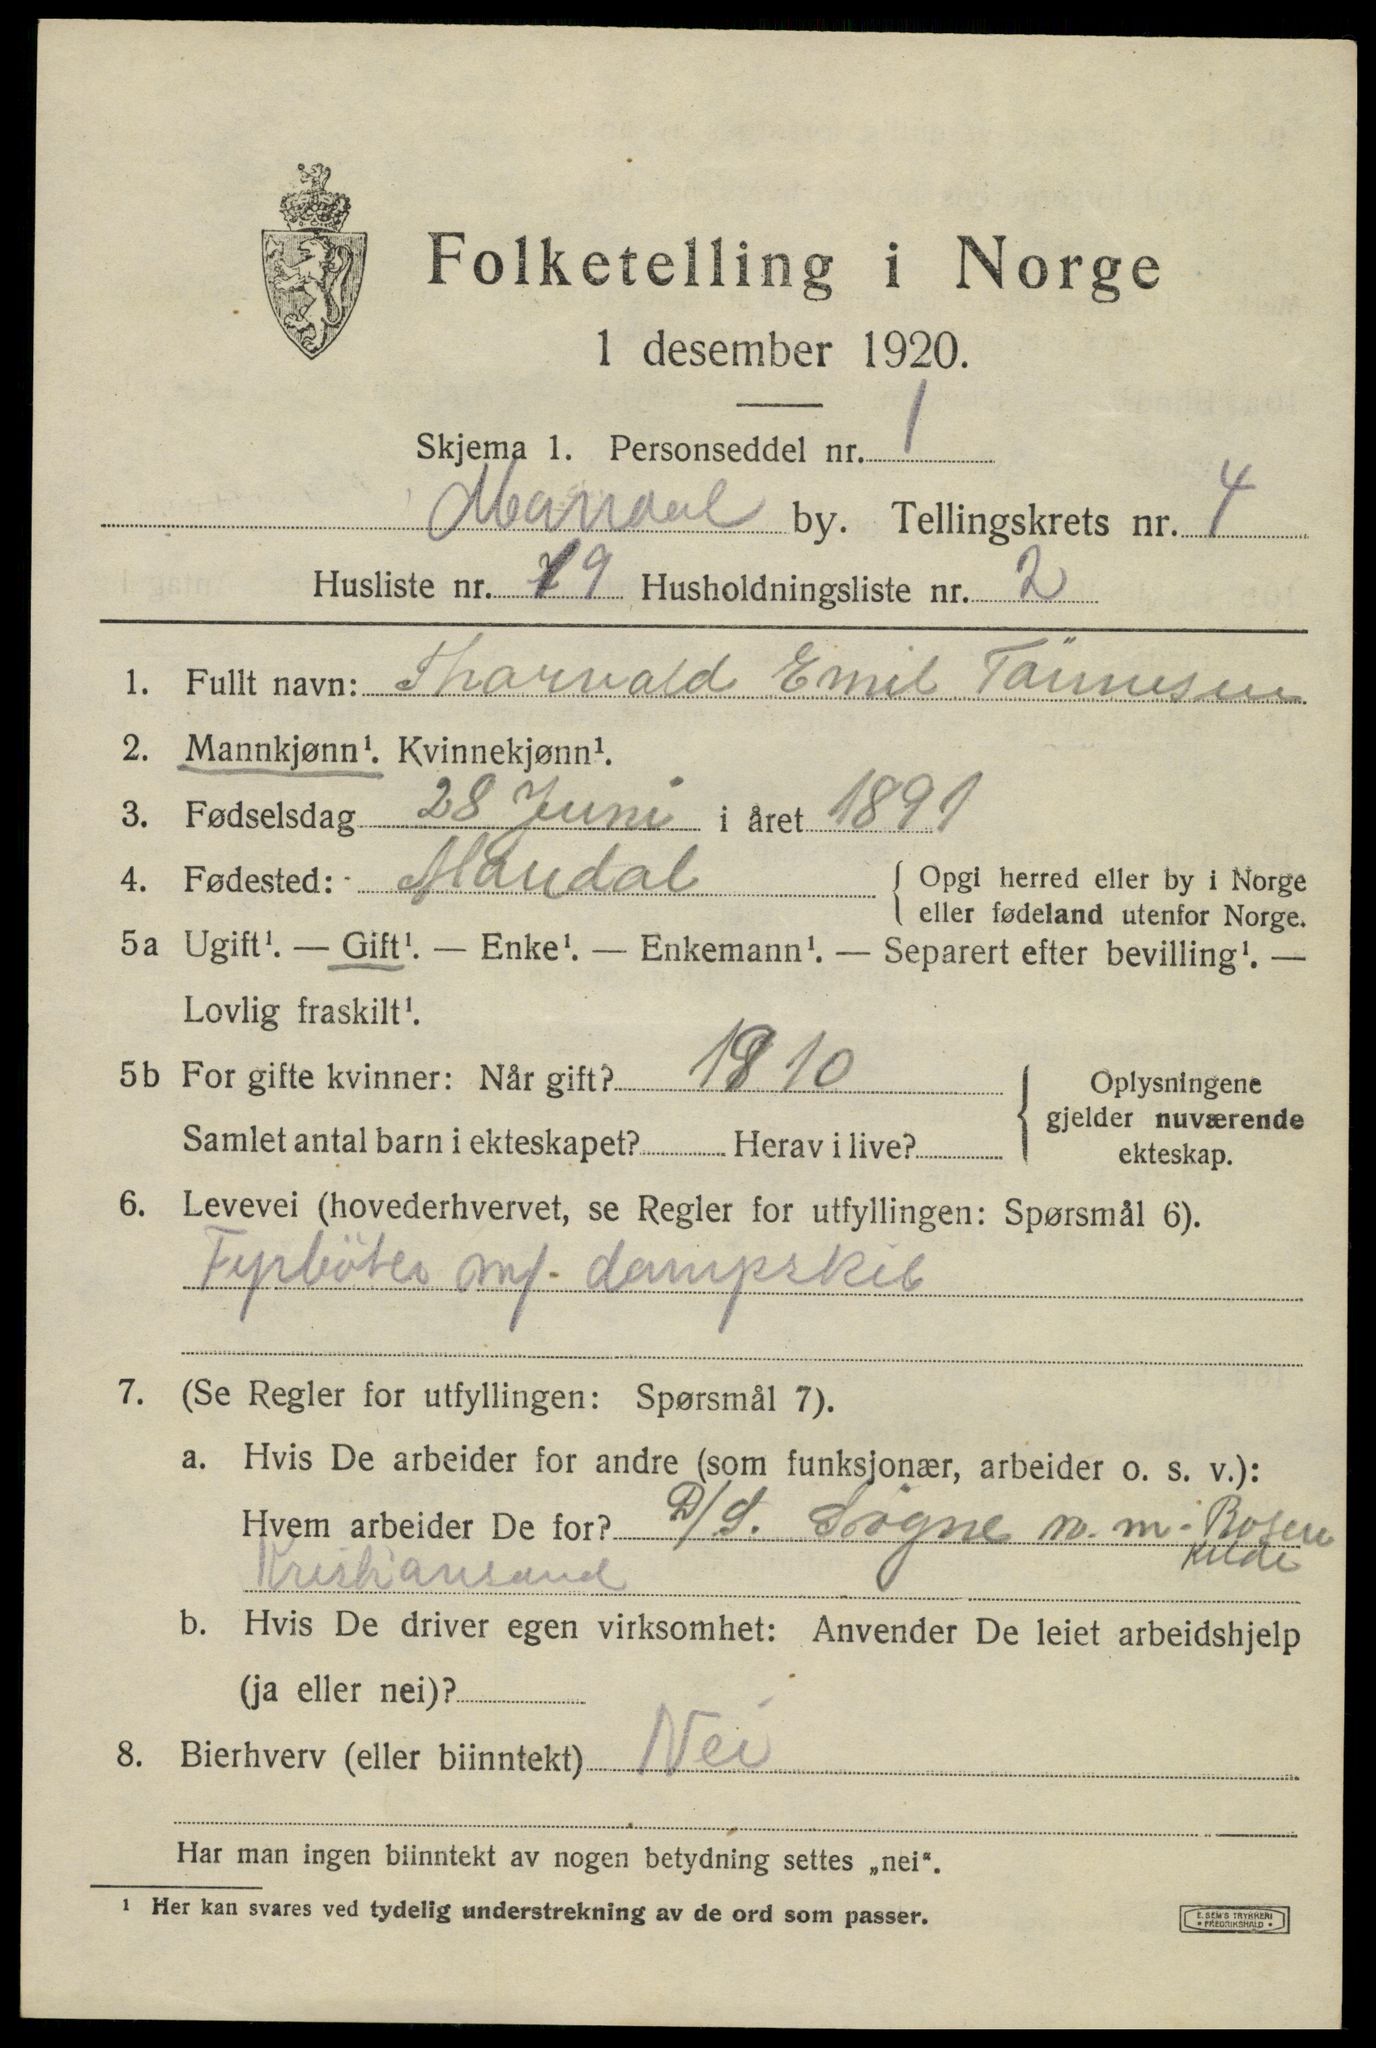 Folketelling i Norge
1 desember 1920.
Skjema 1. Personseddel nr. 1
Mandal by. Tellingskrets nr. 4
Husliste nr. 19 Husholdningsliste nr. 2
1. Fullt navn: Thorvald Emil Tönnesen
2. Mannkjønn¹. Kvinnekjønn¹.
3. Fødselsdag 28 Juni i året 1891
4. Fødested: Mandal { Opgi herred eller by i Norge
eller fødeland utenfor Norge.
5a Ugift¹. — Gift¹. — Enke¹. — Enkemann¹. — Separert efter bevilling¹. —
Lovlig fraskilt¹.
5b For gifte kvinner: Når gift? 1910
Samlet antal barn i ekteskapet? Herav i live?
{ Oplysningene
gjelder nuværende
ekteskap.
6. Levevei (hovederhvervet, se Regler for utfyllingen: Spørsmål 6).
Fyrböter m/ dampskib
7. (Se Regler for utfyllingen: Spørsmål 7).
a. Hvis De arbeider for andre (som funksjonær, arbeider o. s. v.):
Hvem arbeider De for? D/S. Sögne n. m. Rosen
kilde
Kristiansand
b. Hvis De driver egen virksomhet: Anvender De leiet arbeidshjelp
(ja eller nei)?
8. Bierhverv (eller biinntekt) Nei
Har man ingen biinntekt av nogen betydning settes „nei“.
¹ Her kan svares ved tydelig understrekning av de ord som passer.
E. SEM'S TRYKKERI
• FREDRIKSHALD •